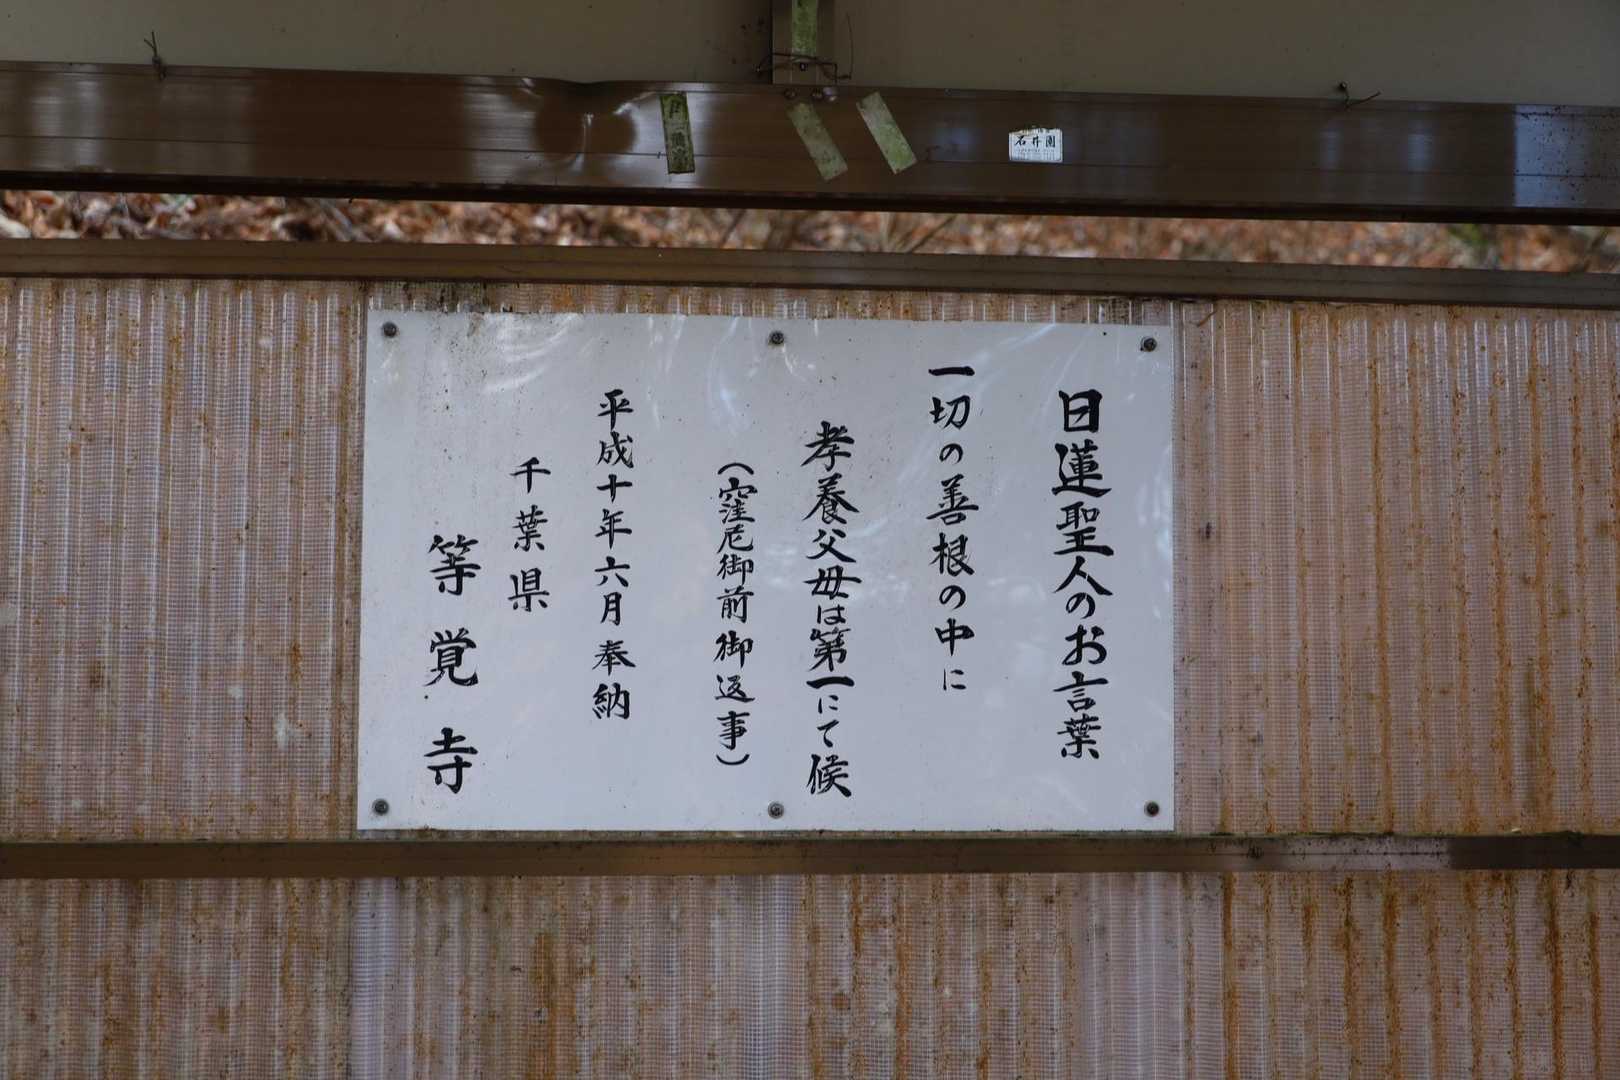 日蓮聖人のお言葉
一切の善根の中に
孝養父母は第一にて候
（窪尼御前御返事）
平成十年六月奉納
千葉県
等覚寺
石井園